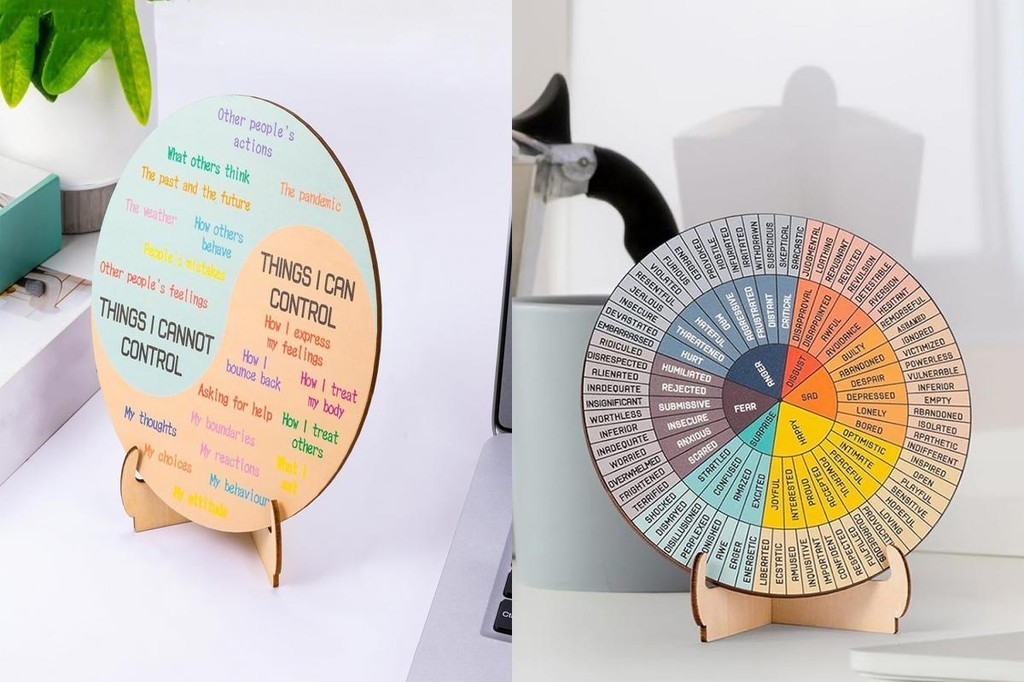 Other people's
actions
What others think
The past and the future
The pandemic
The weather
How others
behave
People's mistakes
Other people's feelings
THINGS I CANNOT
CONTROL
THINGS I CAN
CONTROL
How I express
my feelings
How I
bounce back
How I treat
my body
Asking for help
My boundaries
How I treat
others
My thoughts
My reactions
My choices
What I
My behaviour
My attitude
Ct
ANGER
DISGUST
SAD
HAPPY
SURPRISE
FEAR
HURT
THREATENED
HATEFUL
MAD
AGGRESSIVE
FRUSTRATED
DISTANT
CRITICAL
DISAPPROVAL
DISAPPOINTED
AWFUL
AVOIDANCE
GUILTY
ABANDONED
DESPAIR
DEPRESSED
LONELY
BORED
OPTIMISTIC
INTIMATE
PEACEFUL
POWERFUL
ACCEPTED
PROUD
INTERESTED
JOYFUL
EXCITED
AMAZED
CONFUSED
STARTLED
SCARED
ANXIOUS
INSECURE
SUBMISSIVE
REJECTED
HUMILIATED
EMBARRASSED
DEVASTATED
INSECURE
JEALOUS
RESENTFUL
VIOLATED
FURIOUS
ENRAGED
PROVOKED
HOSTILE
INFURIATED
IRRITATED
WITHDRAWN
SUSPICIOUS
SKEPTICAL
SARCASTIC
JUDGMENTAL
LOATHING
REPUGNANT
REVOLTED
REVULSION
DETESTABLE
AVERSION
HESITANT
REMORSEFUL
ASHAMED
IGNORED
VICTIMIZED
POWERLESS
VULNERABLE
INFERIOR
EMPTY
ABANDONED
ISOLATED
APATHETIC
INDIFFERENT
INSPIRED
OPEN
PLAYFUL
SENSITIVE
HOPEFUL
LOVING
RESPECTED
CONFIDENT
IMPORTANT
INQUISITIVE
AMUSED
ECSTATIC
LIBERATED
ENERGETIC
EAGER
AWE
PERPLEXED
DISILLUSIONED
DISMAYED
SHOCKED
TERRIFIED
FRIGHTENED
OVERWHELMED
WORRIED
INADEQUATE
INFERIOR
WORTHLESS
INSIGNIFICANT
INADEQUATE
ALIENATED
DISRESPECTED
RIDICULED